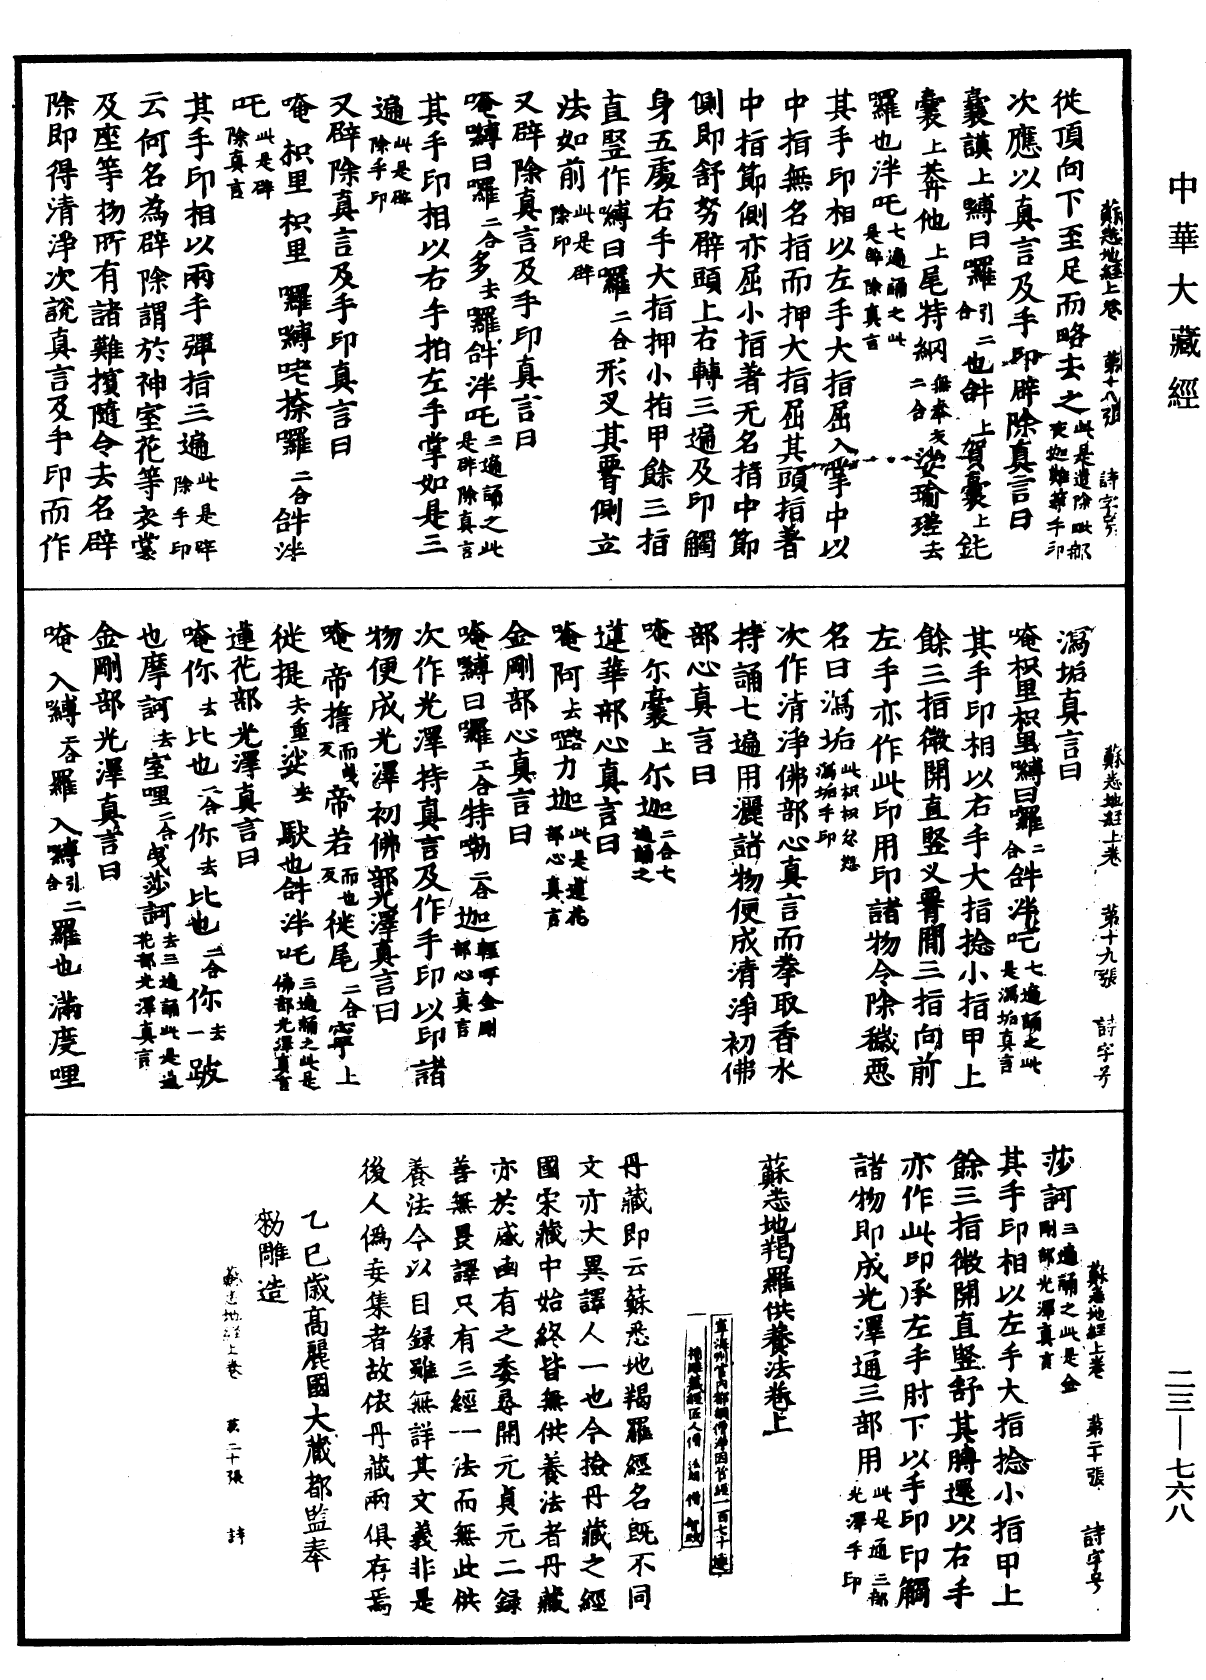 中華大藏經
蘇悉地經上卷 第十八張 詩字号
從頂向下至足而略去之此是遣除毗那夜迦難等手印
次應以真言及手印辟除真言曰
曩謨上嚩日囉引二合也𤙖上賀曩上䭾
曩上莽他上尾特網二合娑瑜瑳去
羅也泮吒七遍誦之此是辟除真言
其手印相以左手大指屈入掌中以
中指無名指而押大指屈其頭指著
中指節側亦屈小指著无名指中節
側即舒努臂頭上右轉三遍及印觸
身五處右手大指押小指甲餘三指
直竪作嚩曰囉二合形叉其䏶側立
法如前此是辟除印
又辟除真言及手印真言曰
唵嚩日囉二合多去囉𤙖泮吒三遍誦之此是辟除真言
其手印相以右手拍左手掌如是三
遍此是辟除手印
又辟除真言及手印真言曰
唵枳里枳里囉嚩咾捺囉二合𤙖泮
吒此是辟除真言
其手印相以兩手彈指三遍此是辟除手印
云何名為辟除謂於神室花等衣裳
及座等物所有諸難擯隨令去名辟
除即得清淨次說真言及手印而作
蘇悉地經上卷 第十九張 詩字号
瀉垢真言曰
唵枳里枳里嚩曰囉二合𤙖泮吒七遍誦之此是瀉垢真言
其手印相以右手大指捻小指甲上
餘三指微開直竪义䏶間三指向前
左手亦作此印用印諸物令除穢惡
名曰瀉垢此枳枳忿怒瀉垢手印
次作清淨佛部心真言而拳取香水
持誦七遍用灑諸物便成清淨初佛
部心真言曰
唵尔曩上尔迦二合七遍誦之
蓮華部心真言曰
唵阿去嚕力迦此是蓮花部心真言
金剛部心真言曰
唵嚩日囉二合特嘞二合迦輕呼金剛部心真言
次作光澤持真言及作手印以印諸
物便成光澤初佛部光澤真言曰
唵帝擔而曵反帝若而也反徙尾二合寧上
徙提去重娑去馱也𤙖泮吒三遍誦之此是佛部光澤真言
蓮花部光澤真言曰
唵你去比也二合你去比也二合你去一跛
也摩訶去室哩二合曳莎訶去三遍誦此是蓮花部光澤真言
金剛部光澤真言曰
唵入嚩二合羅入嚩引二合羅也滿度哩
蘇悉地經上卷 第二十張 詩字号
莎訶三遍誦之此是金剛部光澤真言
其手印相以左手大指捻小指甲上
餘三指微開直竪舒其膊還以右手
亦作此印承左手肘下以手印印觸
諸物即成光澤通三部用此是通三部光澤手印
蘇悉地羯羅供養法卷上
丹藏即云蘇悉地羯羅經名既不同
文亦大異譯人一也今撿丹藏之經
國宋藏中始終皆無供養法者丹藏
亦於咸函有之委尋開元貞元二錄
善無畏譯只有三經一法而無此供
養法今以目錄雖無詳其文義非是
後人僞妄集者故依丹藏兩俱存焉
乙巳歲高麗國大藏都監奉
勑雕造
蘇悉地經上卷 第二十張 詩
二三—七六八